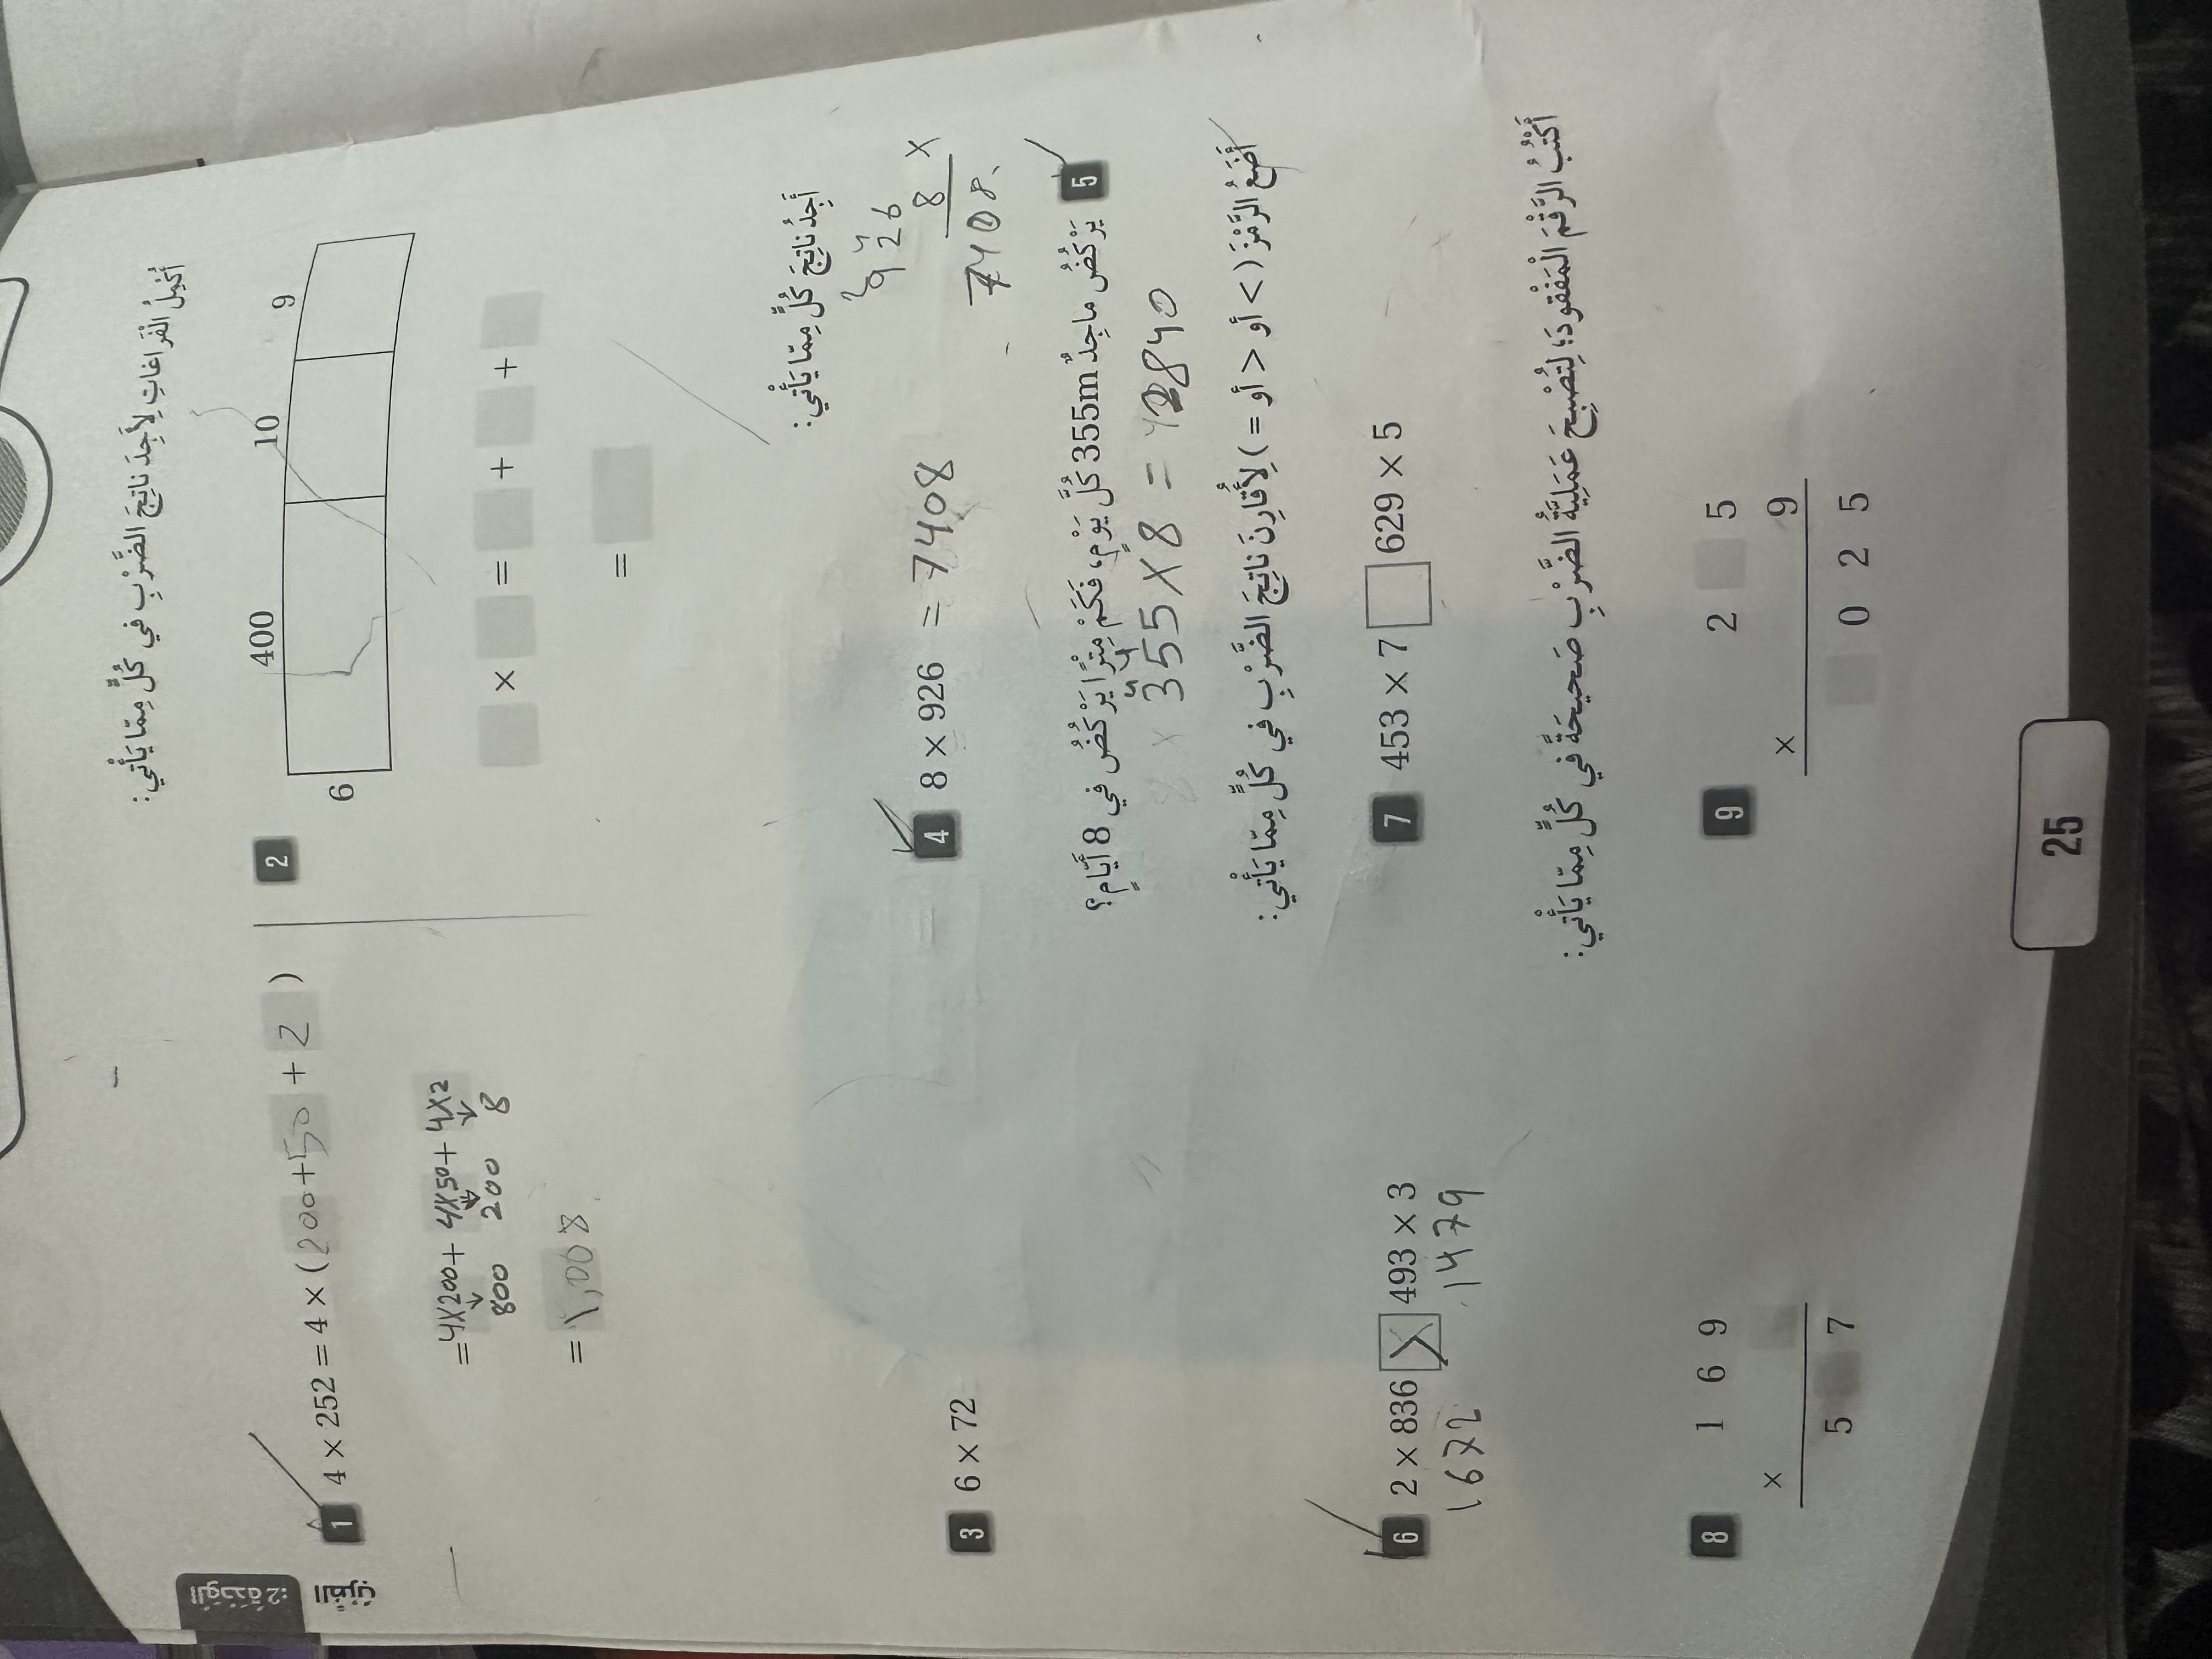 الوحدة 2:
الضرب
أُكْمِلُ الْفَراغاتِ لِأَجِدَ ناتِجَ الضَّرْبِ في كُلٍّ مِمّا يَأْتي:
1 4 × 252 = 4 × (200 + 50 + 2)
= 4×200 + 4×50 + 4×2
800 200 8
= 1,008
2
400 10 9
6
× = + +
=
أَجِدُ ناتِجَ كُلٍّ مِمّا يَأْتي:
3 6 × 72
4 8 × 926 = 7408
926
8 ×
7408
5 يَرْكُضُ ماجِدٌ 355m كُلَّ يَوْمٍ، فَكَمْ مِتْرًا يَرْكُضُ في 8 أَيّامٍ؟
4 4
355 × 8 = 2840
أَضَعُ الرَّمْزَ (< أو > أو =) لِأُقارِنَ ناتِجَ الضَّرْبِ في كُلٍّ مِمّا يَأْتي:
6 2 × 836 > 493 × 3
1672 1479
7 453 × 7 629 × 5
أَكْتُبُ الرَّقْمَ الْمَفْقودَ؛ لِتُصْبِحَ عَمَلِيَّةُ الضَّرْبِ صَحيحَةً في كُلٍّ مِمّا يَأْتي:
8 1 6 9
×
5 7
9 2 5
× 9
0 2 5
25